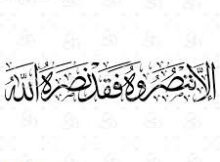 إِلَّا تَنْصُرُوهُ فَقَدْ نَصَرَهُ اللَّهُ